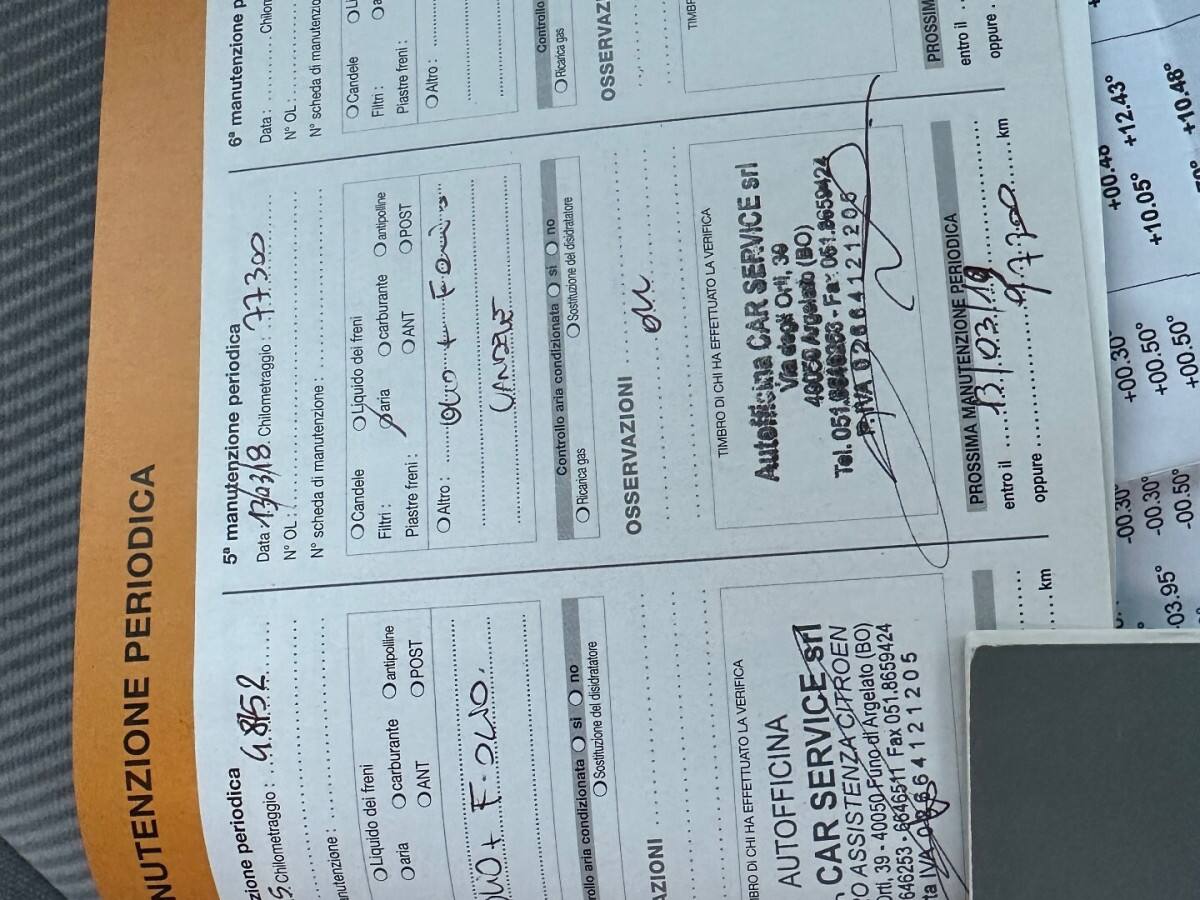 NUTENZIONE PERIODICA
zione periodica
5. Chilometraggio :
anutenzione :
Liquido dei freni
aria carburante antipolline
ANT POST
F. OLIO.
rollo aria condizionata si no
Sostituzione del disidratatore
AZIONI
BRO DI CHI HA EFFETTUATO LA VERIFICA
AUTOFFICINA
CAR SERVICE srl
O ASSISTENZA CITROEN
Orti, 39 - 40050 Funo di Argelato (BO)
646253 - 6646511 Fax 051.8659424
km
5ª manutenzione periodica
Data : 13/03/18 Chilometraggio : 77300
N° OL :
N° scheda di manutenzione :
Candele Liquido dei freni
Filtri : aria carburante antipolline
Piastre freni : ANT POST
Altro :
Controllo aria condizionata si no
Ricarica gas Sostituzione del disidratatore
OSSERVAZIONI
TIMBRO DI CHI HA EFFETTUATO LA VERIFICA
Autofficina CAR SERVICE srl
Via degli Orti, 39
40050 Argelato (BO)
Tel. 051.6646253 - Fax 051.8659424
P. IVA 028664121205
PROSSIMA MANUTENZIONE PERIODICA
entro il 13/03/19
oppure 97700 km
6ª manutenzione p
Data : Chilom
N° OL :
N° scheda di manutenzio
Candele Li
Filtri : a
Piastre freni :
Altro :
Controllo
Ricarica gas
OSSERVAZI
TIMB
PROSSIM
entro il
oppure
-00.30° +00.30° +00.48°
-03.95° -00.30° +00.50° +10.05° +12.43°
+00.50° +10.48°